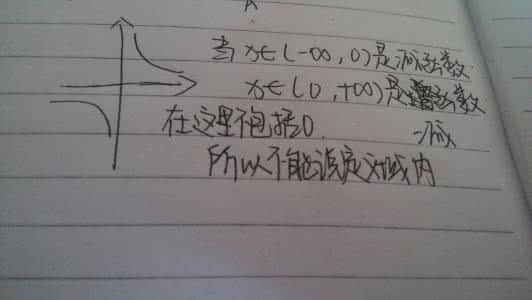 当 x∈(-∞,0)是减函数
x∈(0,+∞)是函数
减
在这里不包括0.
所以不能说定义域内